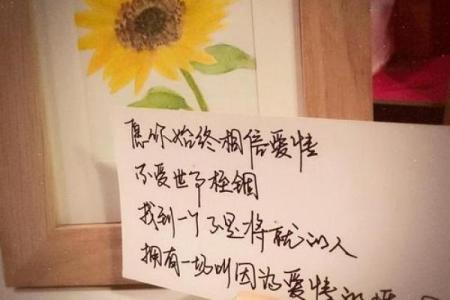 愿你始终相信爱情
不受世下桎锢
找到一个不是将就的人
拥有一场叫因为爱情的